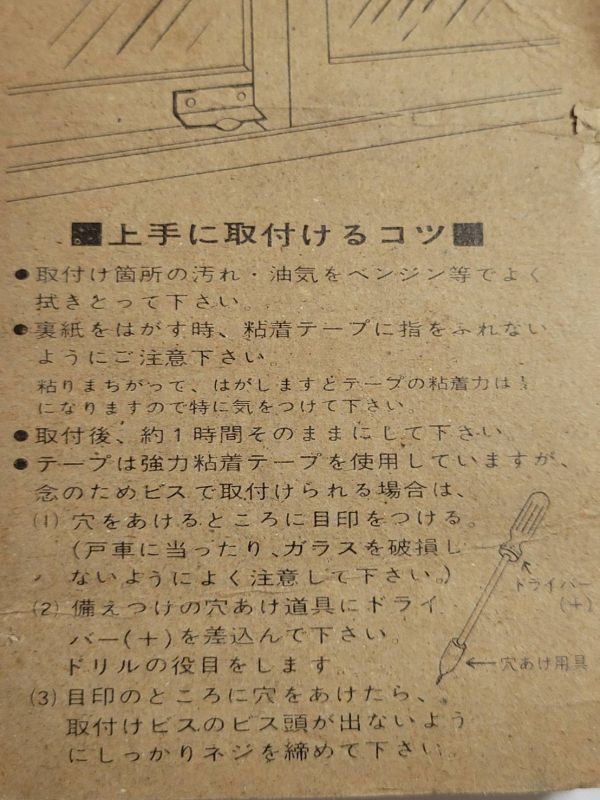 ■上手に取付けるコツ■
●取付け箇所の汚れ・油気をベンジン等でよく
拭きとって下さい。
●裏紙をはがす時、粘着テープに指をふれない
ようにご注意下さい。
粘りまちがって、はがしますとテープの粘着力は
になりますので特に気をつけて下さい。
●取付後、約1時間そのままにして下さい。
●テープは強力粘着テープを使用していますが、
念のためビスで取付けられる場合は、
(1) 穴をあけるところに目印をつける。
(戸車に当ったり、ガラスを破損し
ないようによく注意して下さい。)
(2) 備えつけの穴あけ道具にドライ
バー(+)を差込んで下さい。
ドリルの役目をします。
(3) 目印のところに穴をあけたら、
取付けビスのビス頭が出ないよう
にしっかりネジを締めて下さい。
ドライバー
(+)
穴あけ用具